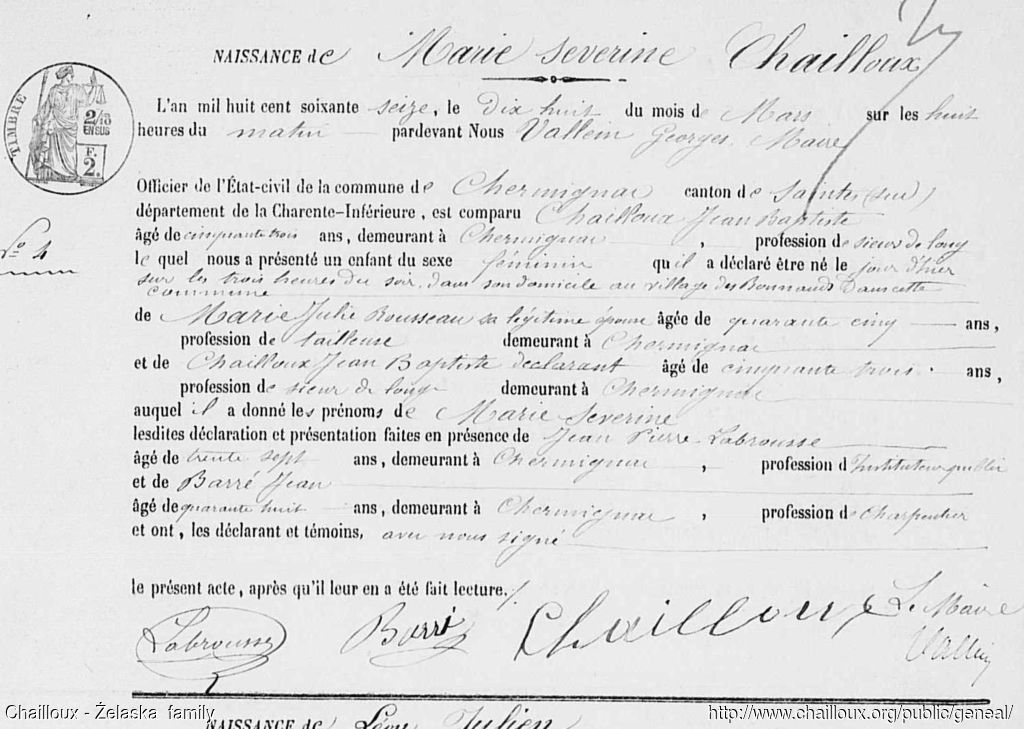 NAISSANCE de Marie Severine Chailloux
TIMBRE
2/10
EN SUS
F.
2.
L'an mil huit cent soixante seize, le dix huit du mois de Mars sur les huit
heures du matin pardevant Nous Vallein Georges, Maire
Officier de l'État-civil de la commune de Chermignac canton de Saintes (sud)
département de la Charente-Inférieure, est comparu Chailloux Jean Baptiste
âgé de cinquante trois ans, demeurant à Chermignac, profession de sieur de long
No 4
le quel nous a présenté un enfant du sexe féminin qu'il a déclaré être né le jour d'hier
sur les trois heures du soir, dans son domicile au village des Bonnauds dans cette
commune
de Marie Julie Rousseau sa légitime épouse âgée de quarante cinq ans,
profession de tailleuse demeurant à Chermignac
et de Chailloux Jean Baptiste déclarant âgé de cinquante trois ans,
profession de sieur de long demeurant à Chermignac
auquel il a donné les prénoms de Marie Severine
lesdites déclaration et présentation faites en présence de Jean Pierre Labrousse
âgé de trente sept ans, demeurant à Chermignac, profession d'Instituteur public
et de Barré Jean
âgé de quarante huit ans, demeurant à Chermignac, profession de charpentier
et ont, les déclarant et témoins, avec nous signé
le présent acte, après qu'il leur en a été fait lecture.
Labrousse Barré Chailloux Le Maire
Vallein
NAISSANCE de Léon Julien
Chailloux - Żelaska family http://www.chailloux.org/public/geneal/